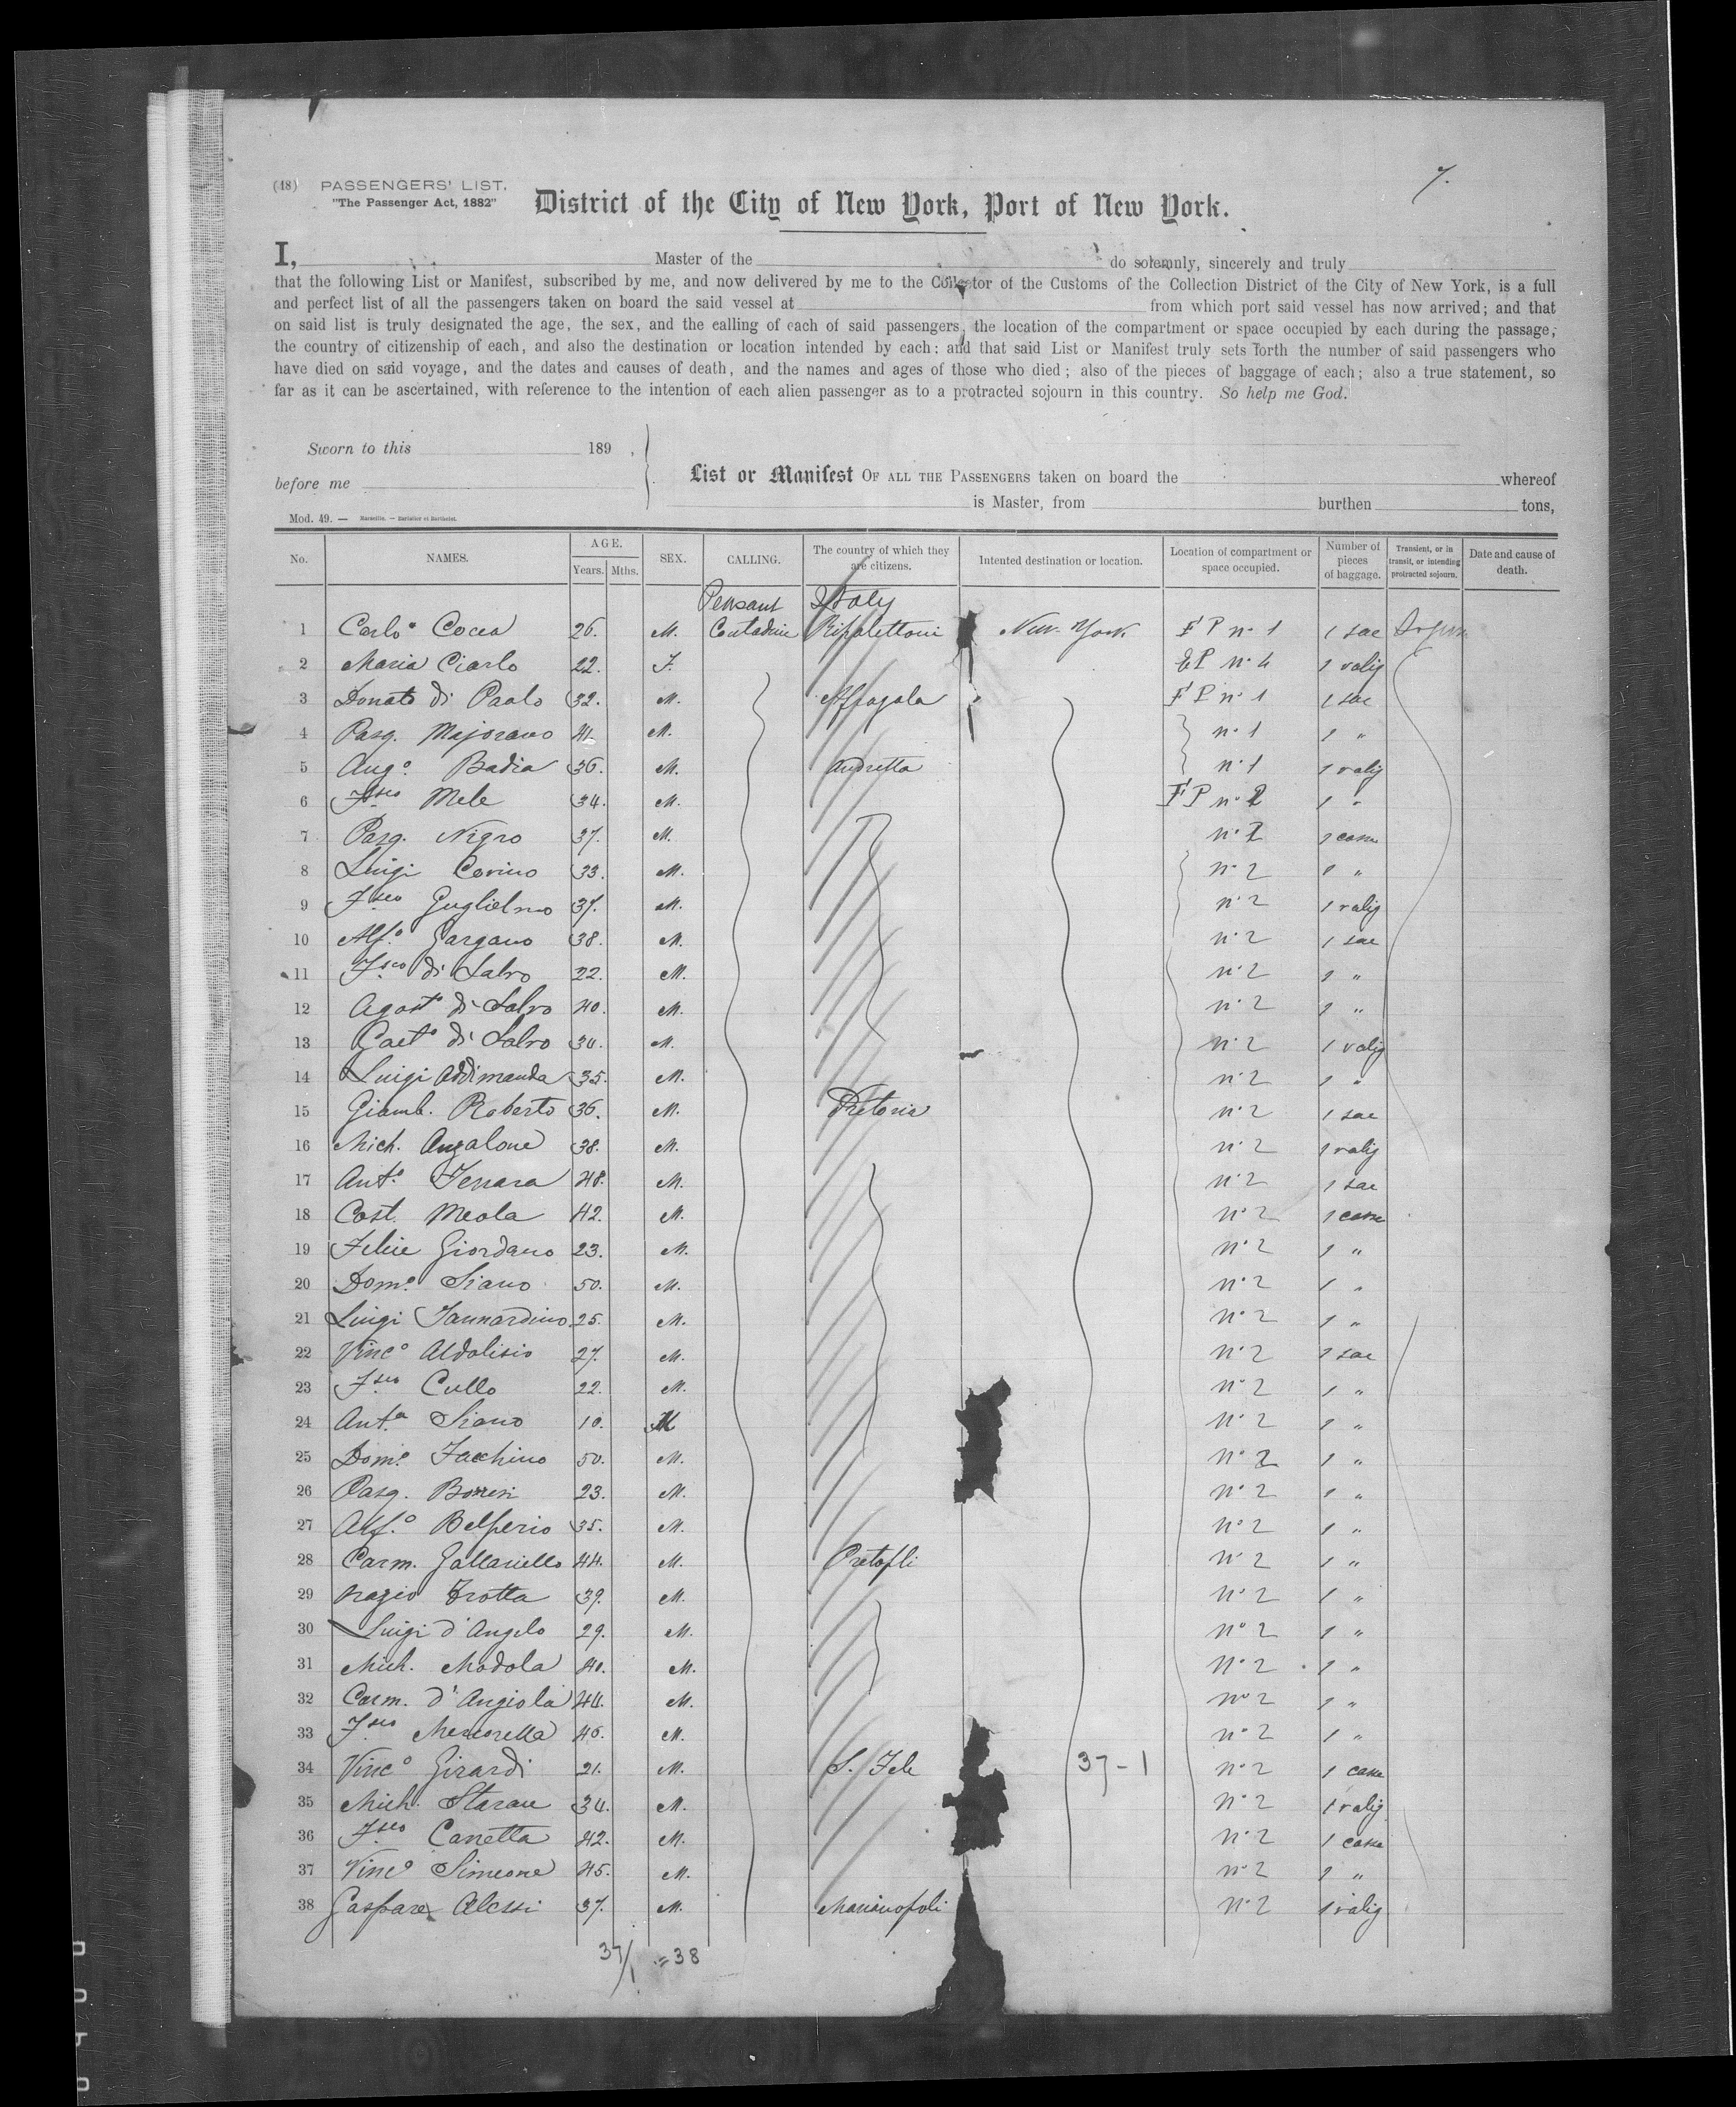 7.
(48) PASSENGERS' LIST.
"The Passenger Act, 1882"
District of the City of New York, Port of New York.
I, Master of the do solemnly, sincerely and truly
that the following List or Manifest, subscribed by me, and now delivered by me to the Collector of the Customs of the Collection District of the City of New York, is a full
and perfect list of all the passengers taken on board the said vessel at from which port said vessel has now arrived; and that
on said list is truly designated the age, the sex, and the calling of each of said passengers, the location of the compartment or space occupied by each during the passage,
the country of citizenship of each, and also the destination or location intended by each: and that said List or Manifest truly sets forth the number of said passengers who
have died on said voyage, and the dates and causes of death, and the names and ages of those who died; also of the pieces of baggage of each; also a true statement, so
far as it can be ascertained, with reference to the intention of each alien passenger as to a protracted sojourn in this country. So help me God.
Sworn to this 189 ,
before me
List or Manifest OF ALL THE PASSENGERS taken on board the whereof
is Master, from burthen tons,
Mod. 49. — Marseille. — Barlatier et Barthelet.
No. NAMES. AGE. Years. Mths. SEX. CALLING. The country of which they are citizens. Intented destination or location. Location of compartment or space occupied. Number of pieces of baggage. Transient, or in transit, or intending protracted sojourn. Date and cause of death.
Peasant Italy
1 Carlo Cocca 26. M. Contadini New York F P n° 1 1 sac
2 Maria Ciarlo 22. F. E P n° 4 1 valig
3 Donato di Paolo 32. M. Affragola F P n° 1 1 sac
4 Pasq. Majorano 41. M. n° 1 1 "
5 Ang° Badia 36. M. Andretta n° 1 1 valig
6 Fsco Mele 34. M. F P n° 2 1 "
7 Pasq. Nigro 37. M. n° 2 1 casse
8 Luigi Cerino 33. M. n° 2 1 "
9 Fsco Guglielmo 37. M. n° 2 1 valig
10 Alf° Gargano 38. M. n° 2 1 sac
11 Fsco di Salvo 22. M. n° 2 1 "
12 Agost° di Salvo 40. M. n° 2 1 "
13 Gaet° di Salvo 34. M. n° 2 1 valig
14 Luigi Addimanda 35. M. n° 2 1 "
15 Giamb. Roberto 36. M. n° 2 1 sac
16 Mich. Angalone 38. M. n° 2 1 valig
17 Ant° 48. M. n° 2 1 sac
18 Cost. Meola 42. M. n° 2 1 casse
19 Felice Giordano 23. M. n° 2 1 "
20 Dom° Siano 50. M. n° 2 1 "
21 Luigi Iannardino 25. M. n° 2 1 "
22 Vinc° Aldolisio 27. M. n° 2 1 sac
23 Fsco Cullo 22. M. n° 2 1 "
24 Anta Siano 10. M n° 2 1 "
25 Dom° Facchino 50. M. n° 2 1 "
26 Pasq. 23. M. n° 2 1 "
27 Alf° Belperio 35. M. n° 2 1 "
28 Carm. Gallariello 44. M. n° 2 1 "
29 Trotta 39. M. n° 2 1 "
30 Luigi d'Angelo 29. M. n° 2 1 "
31 Mich. Modola 40. M. n° 2 1 "
32 Carm. d'Angiola 44. M. n° 2 1 "
33 Fsco Mercorella 46. M. n° 2 1 "
34 Vinc° Girardi 21. M. S. Fele 37-1 n° 2 1 casse
35 Mich. 34. M. n° 2 1 valig
36 Fsco Canetta 42. M. n° 2 1 casse
37 Vinc° Simeone 45. M. n° 2 1 "
38 Gaspare Alessi 37. M. Marianopoli n° 2 1 valig
37/1 = 38